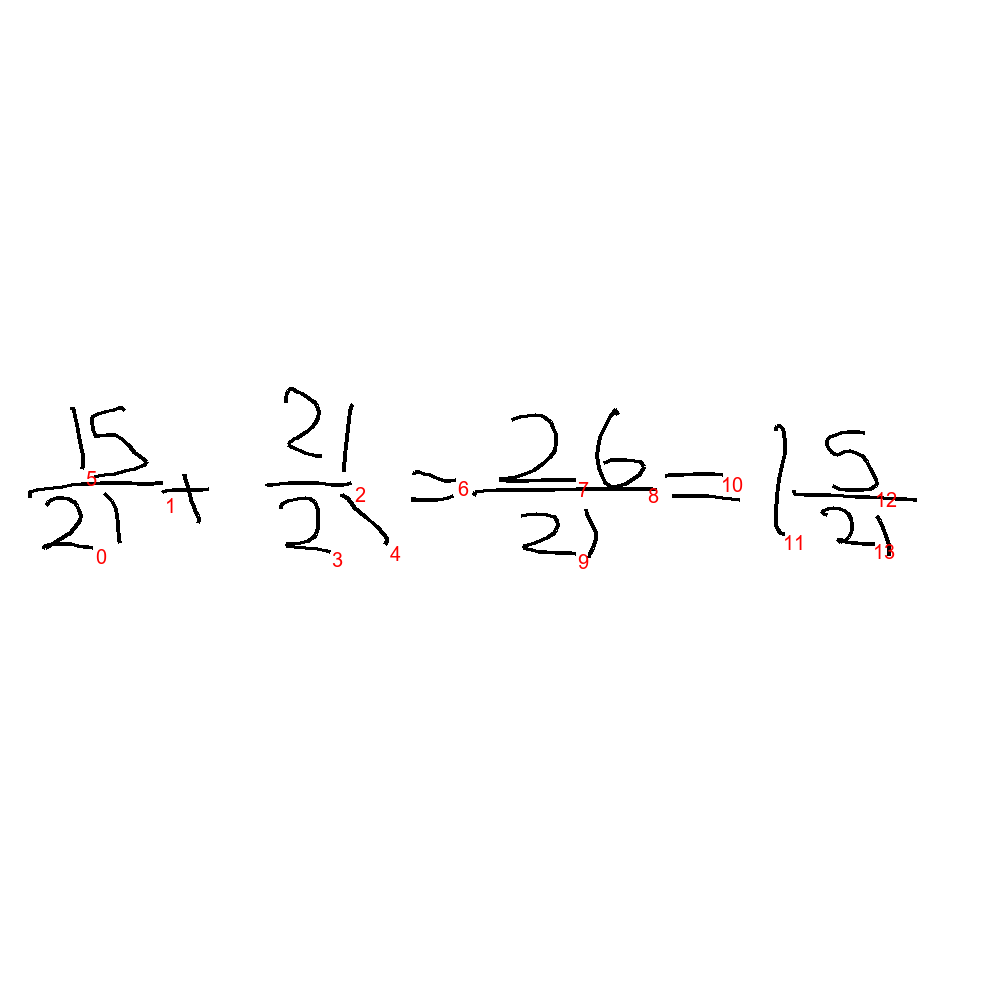 15/21 + 21/21 = 26/21 = 1 5/21
0 1 2 3 4 5 6 7 8 9 10 11 12 13